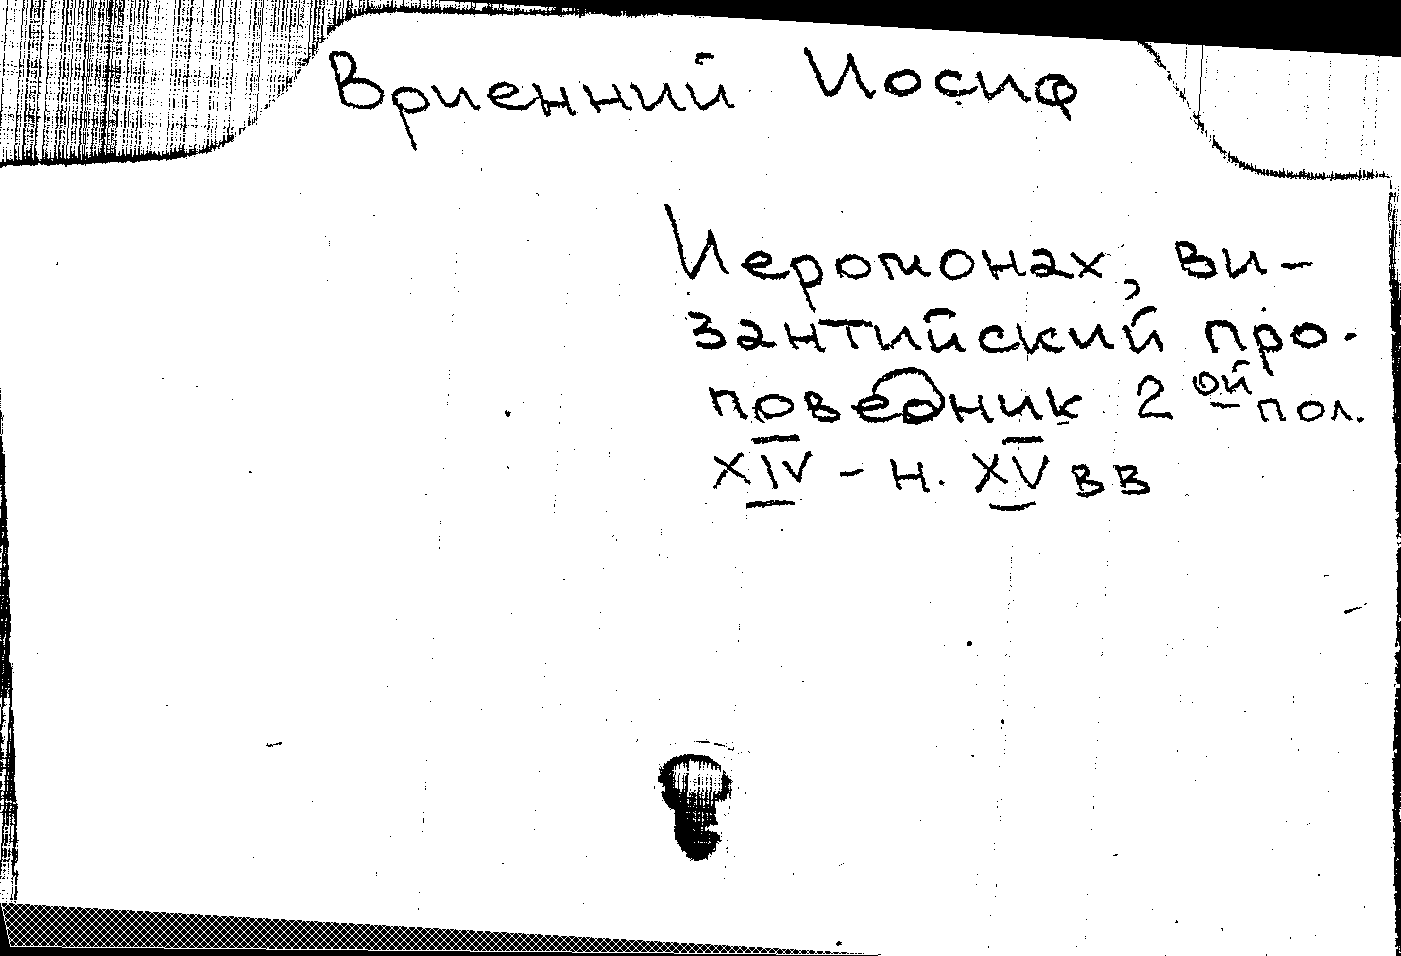 Вриенний Иосиф
Иеромонах, ви-
зантийский про-
поведник 2ой пол.
XIV - н. XV вв